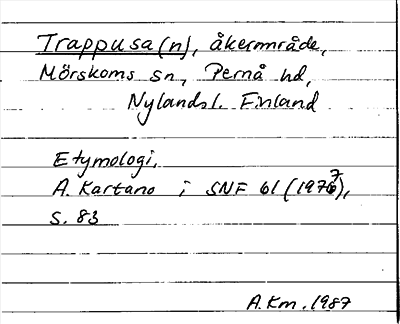 Trappusa(n), åkerområde,
Mörskoms sn, Pernå hd,
Nylands l. Finland
Etymologi.
A. Kartano i SNF 61 (1977),
s. 83
A.Km. 1987